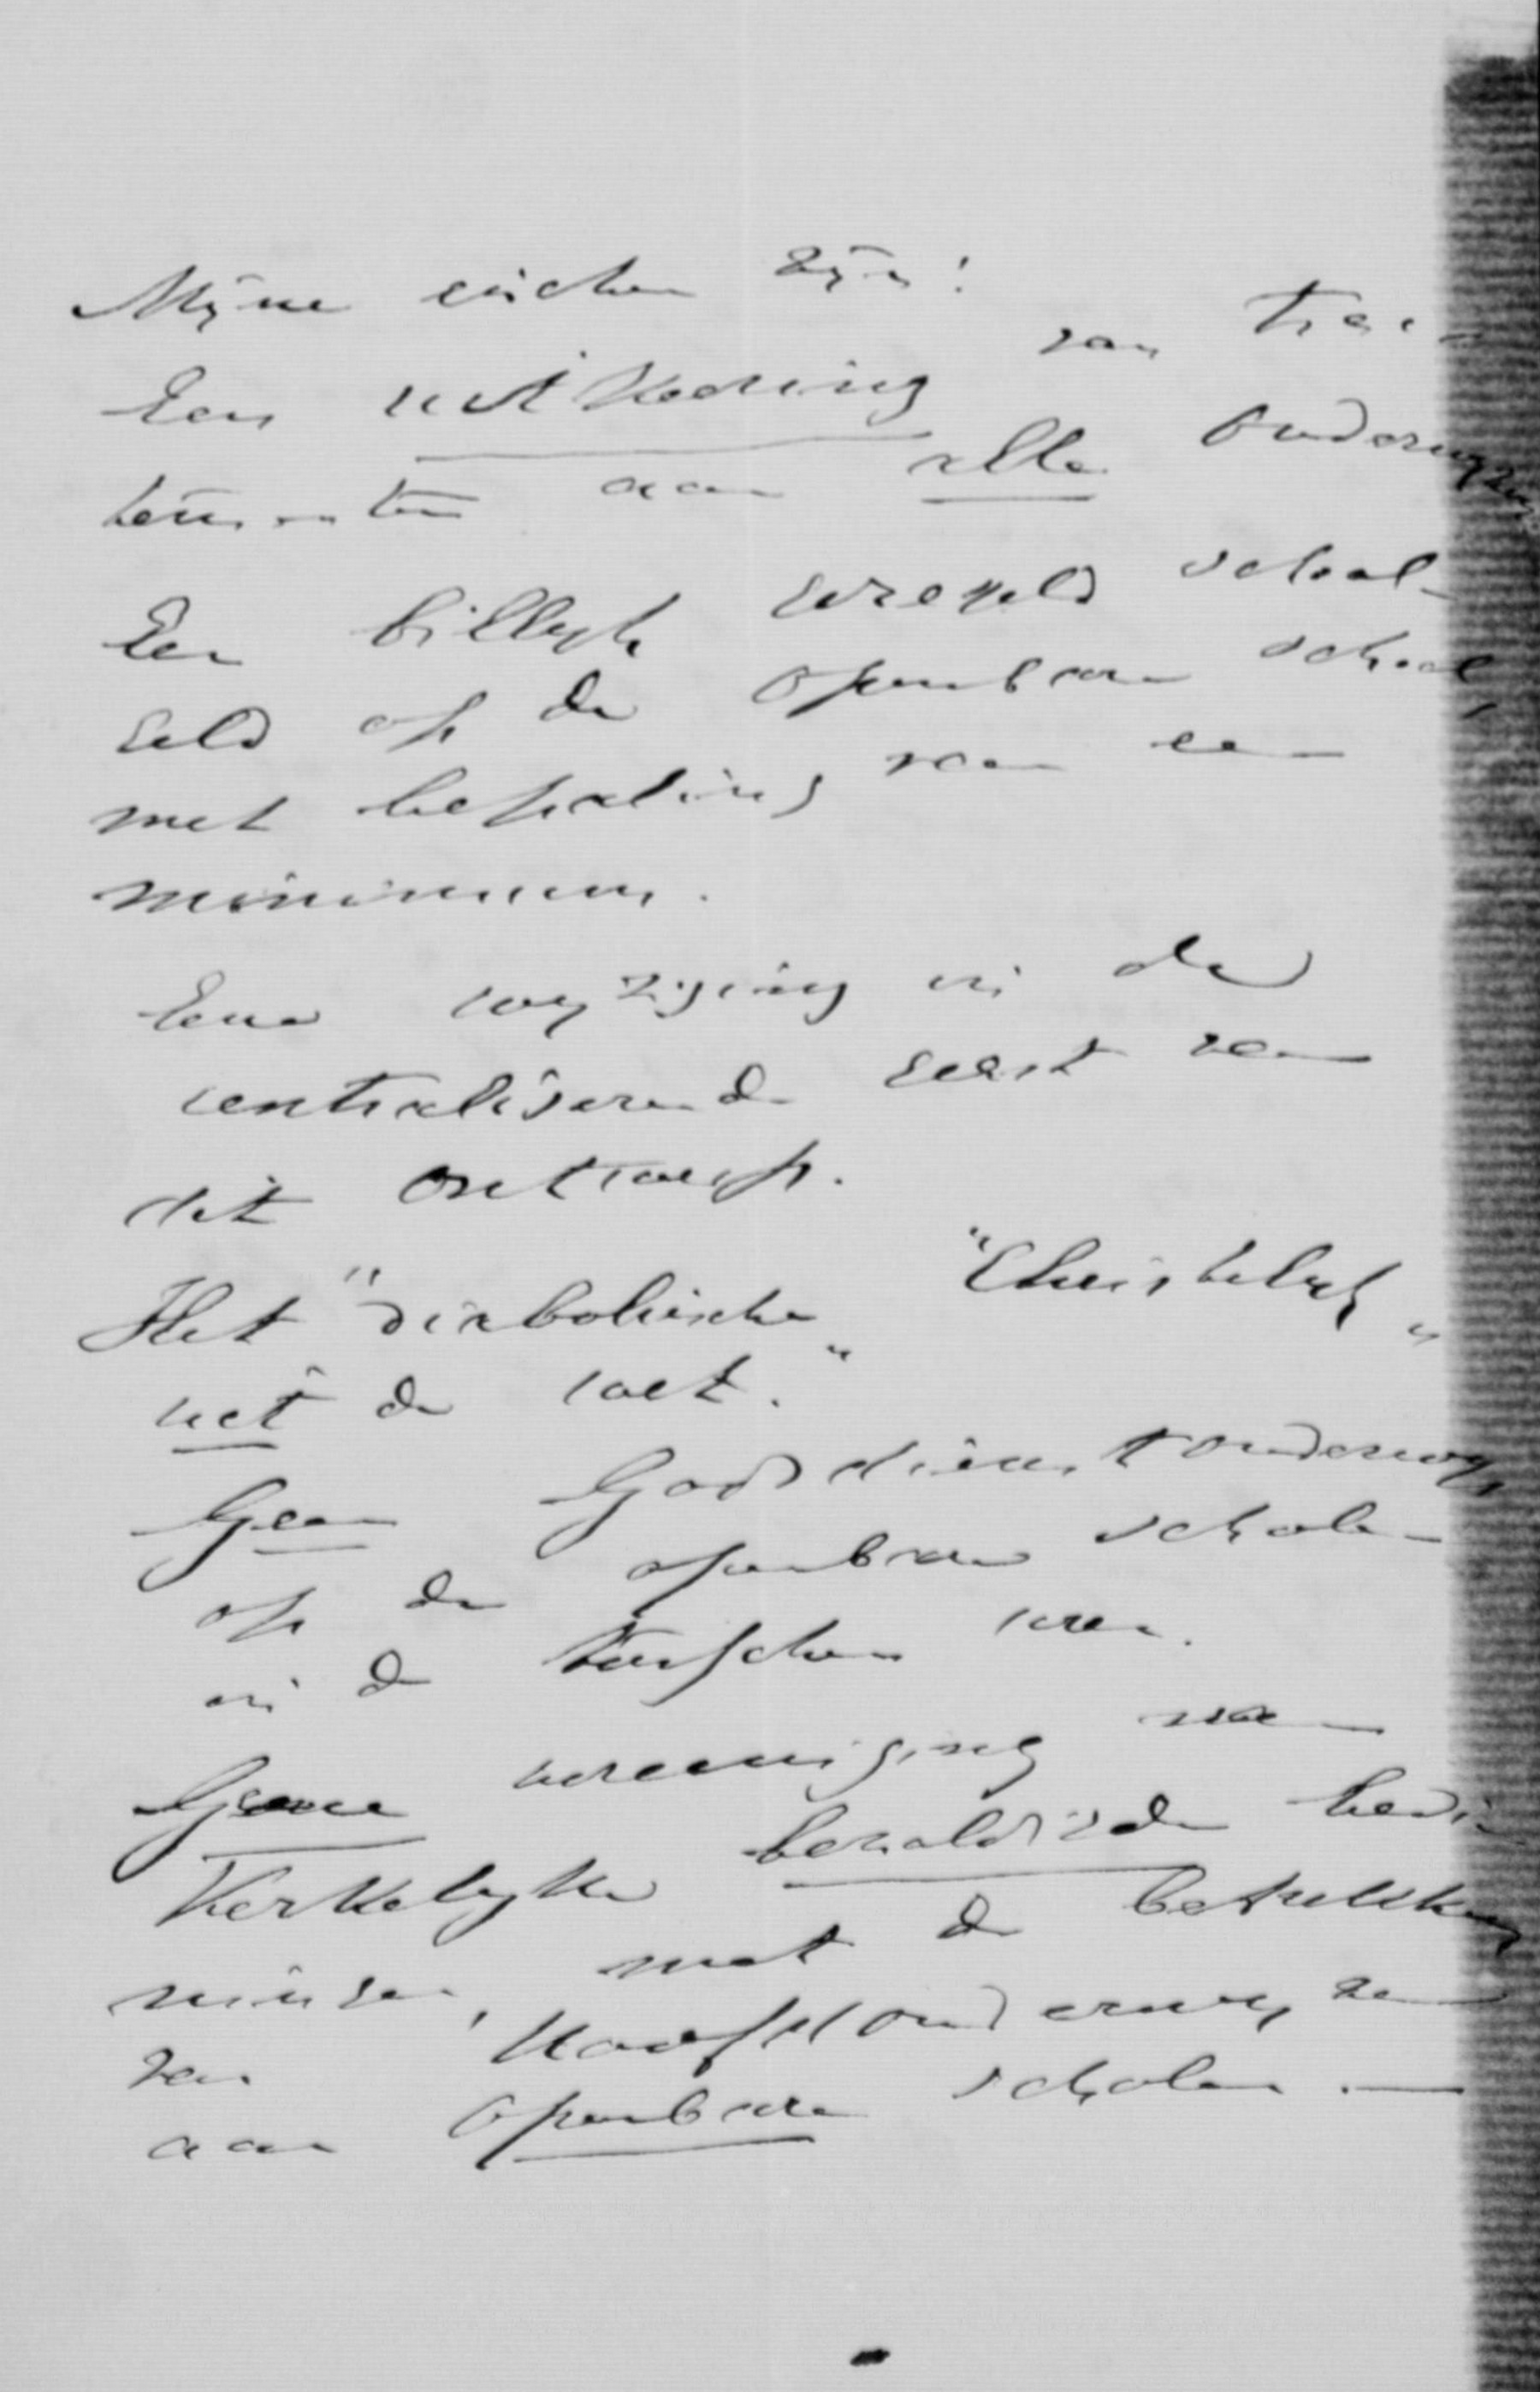 Mijne eischen zijn:
Een uitkeering van trac-
tementen aan alle onderwijzers
Een billijk geregeld school-
geld op de openbare school,
met bepaling van een
minimum.
Eene wijziging in de
centraliserende geest van
dit ontwerp.
Het "diabolische" "Christelijk"
uit de wet.
Geen Godsdienstonderwijs
op de openbare scholen
in de tusschen uren.
Geene vereeniging van
Kerkelijke bezoldigde bedie-
ningen, met de betrekking
van Hoofdonderwijzer
aan openbare scholen. —